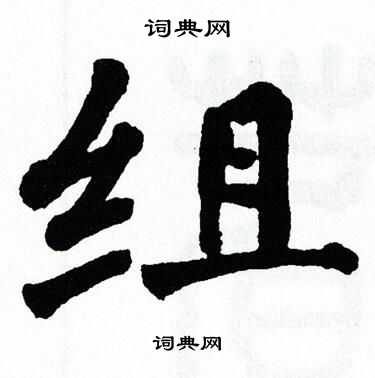 词典网
组
词典网